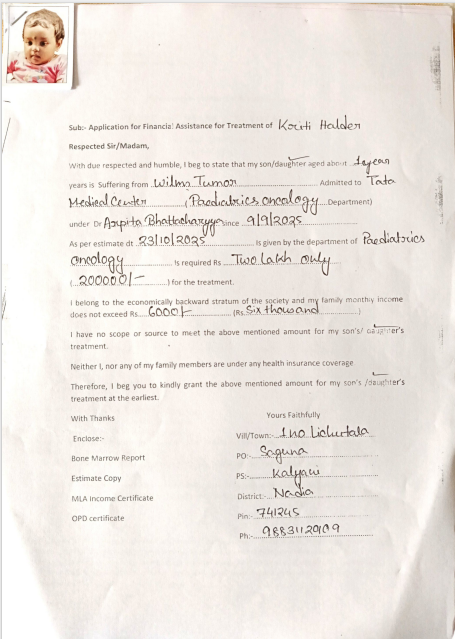 Sub:- Application for Financial Assistance for Treatment of Kriti Halder
Respected Sir/Madam,
With due respected and humble, I beg to state that my son/daughter aged about 1 year
years is Suffering from Wilms Tumor Admitted to Tata
Medical Center (Paediatrics oncology Department)
under Dr Arpita Bhattacharyya since 9/9/2025
As per estimate dt 23/10/2025 Is given by the department of Paediatrics
oncology Is required Rs Two Lakh only
(200000/- ) for the treatment.
I belong to the economically backward stratum of the society and my family monthly income
does not exceed Rs 6000/- (Rs Six thousand )
I have no scope or source to meet the above mentioned amount for my son's/ daughter's
treatment.
Neither I, nor any of my family members are under any health insurance coverage
Therefore, I beg you to kindly grant the above mentioned amount for my son's /daughter's
treatment at the earliest.
With Thanks
Yours Faithfully
Enclose:-
Vill/Town:- 1 no
Bone Marrow Report
PO:- Saguna
Estimate Copy
PS:- Kalyani
MLA Income Certificate
District:- Nadia
OPD certificate
Pin:- 741245
Ph:-